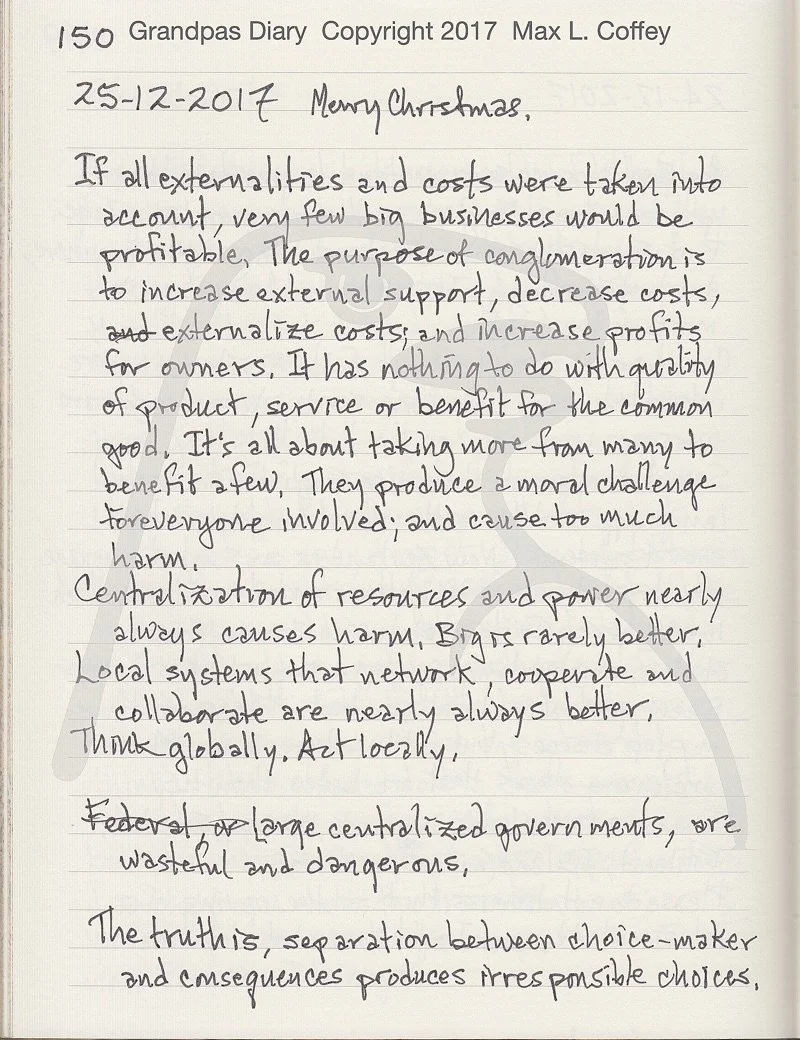 150 Grandpas Diary Copyright 2017 Max L. Coffey
25-12-2017 Merry Christmas.
If all externalities and costs were taken into
account, very few big businesses would be
profitable. The purpose of conglomeration is
to increase external support, decrease costs,
and externalize costs; and increase profits
for owners. It has nothing to do with quality
of product, service or benefit for the common
good. It's all about taking more from many to
benefit a few. They produce a moral challenge
for everyone involved; and cause too much
harm.
Centralization of resources and power nearly
always causes harm. Big is rarely better.
Local systems that network, cooperate and
collaborate are nearly always better.
Think globally. Act locally.
Federal, or large centralized governments, are
wasteful and dangerous.
The truth is, separation between choice-maker
and consequences produces irresponsible choices.